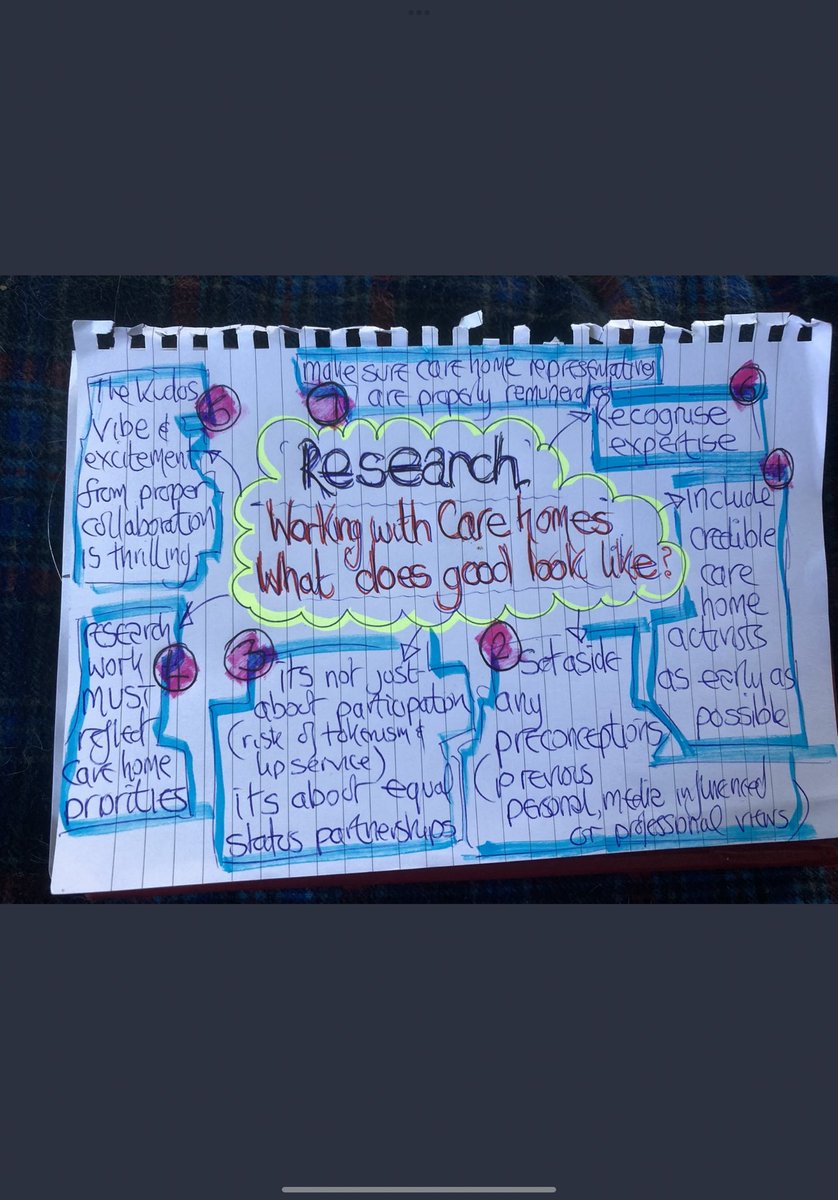 Research
Working with Care homes
What does good look like?
1
research
work
must
reflect
care home
priorities
2
Set aside
any
preconceptions
(previous
personal, media influenced
or professional views)
3
its not just
about participation
(risk of tokenism &
lip service)
its about equal
status partnerships
4
include
credible
care
home
activists
as early as
possible
5
The Kudos
Vibe &
excitement
from proper
collaboration
is thrilling
6
Recognise
expertise
7
make sure care home representatives
are properly remunerated